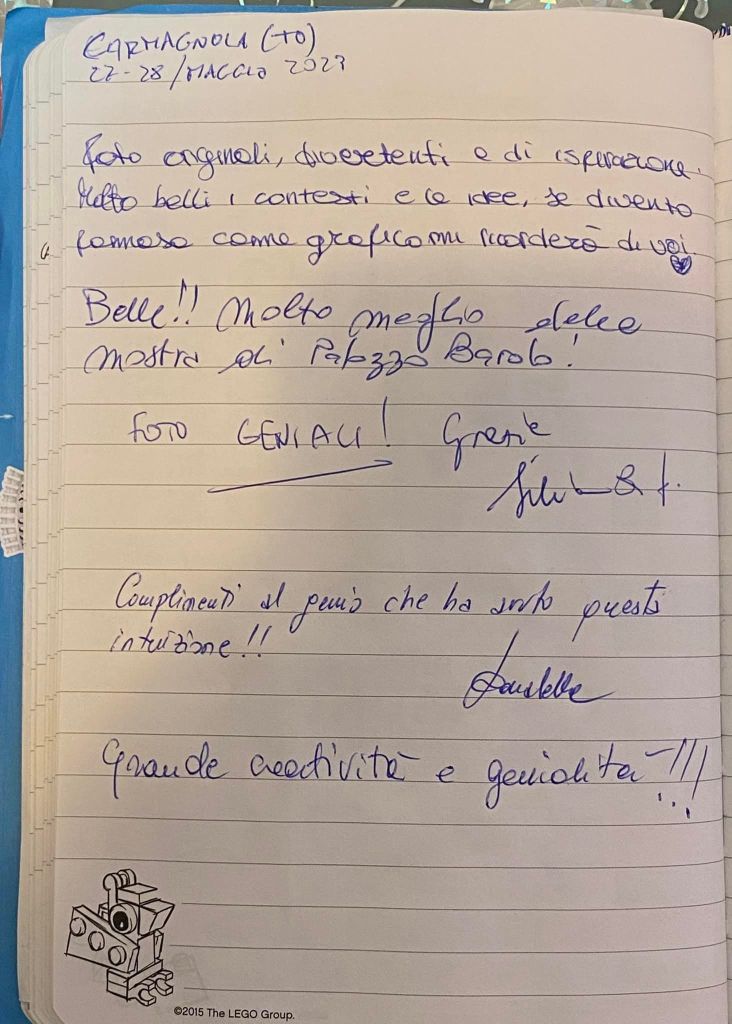 CARMAGNOLA (TO)
27-28/MAGGIO 2023
Foto originali, divertenti e di ispirazione.
Molto belli i contesti e le idee, se divento
famosa come grafica mi ricorderò di voi
Belle!! Molto meglio della
mostra di Palazzo Barolo!
FOTO GENIALI! Grazie
Complimenti al genio che ha avuto questa
intuizione!!
Grande creatività e genialità!!!
©2015 The LEGO Group.